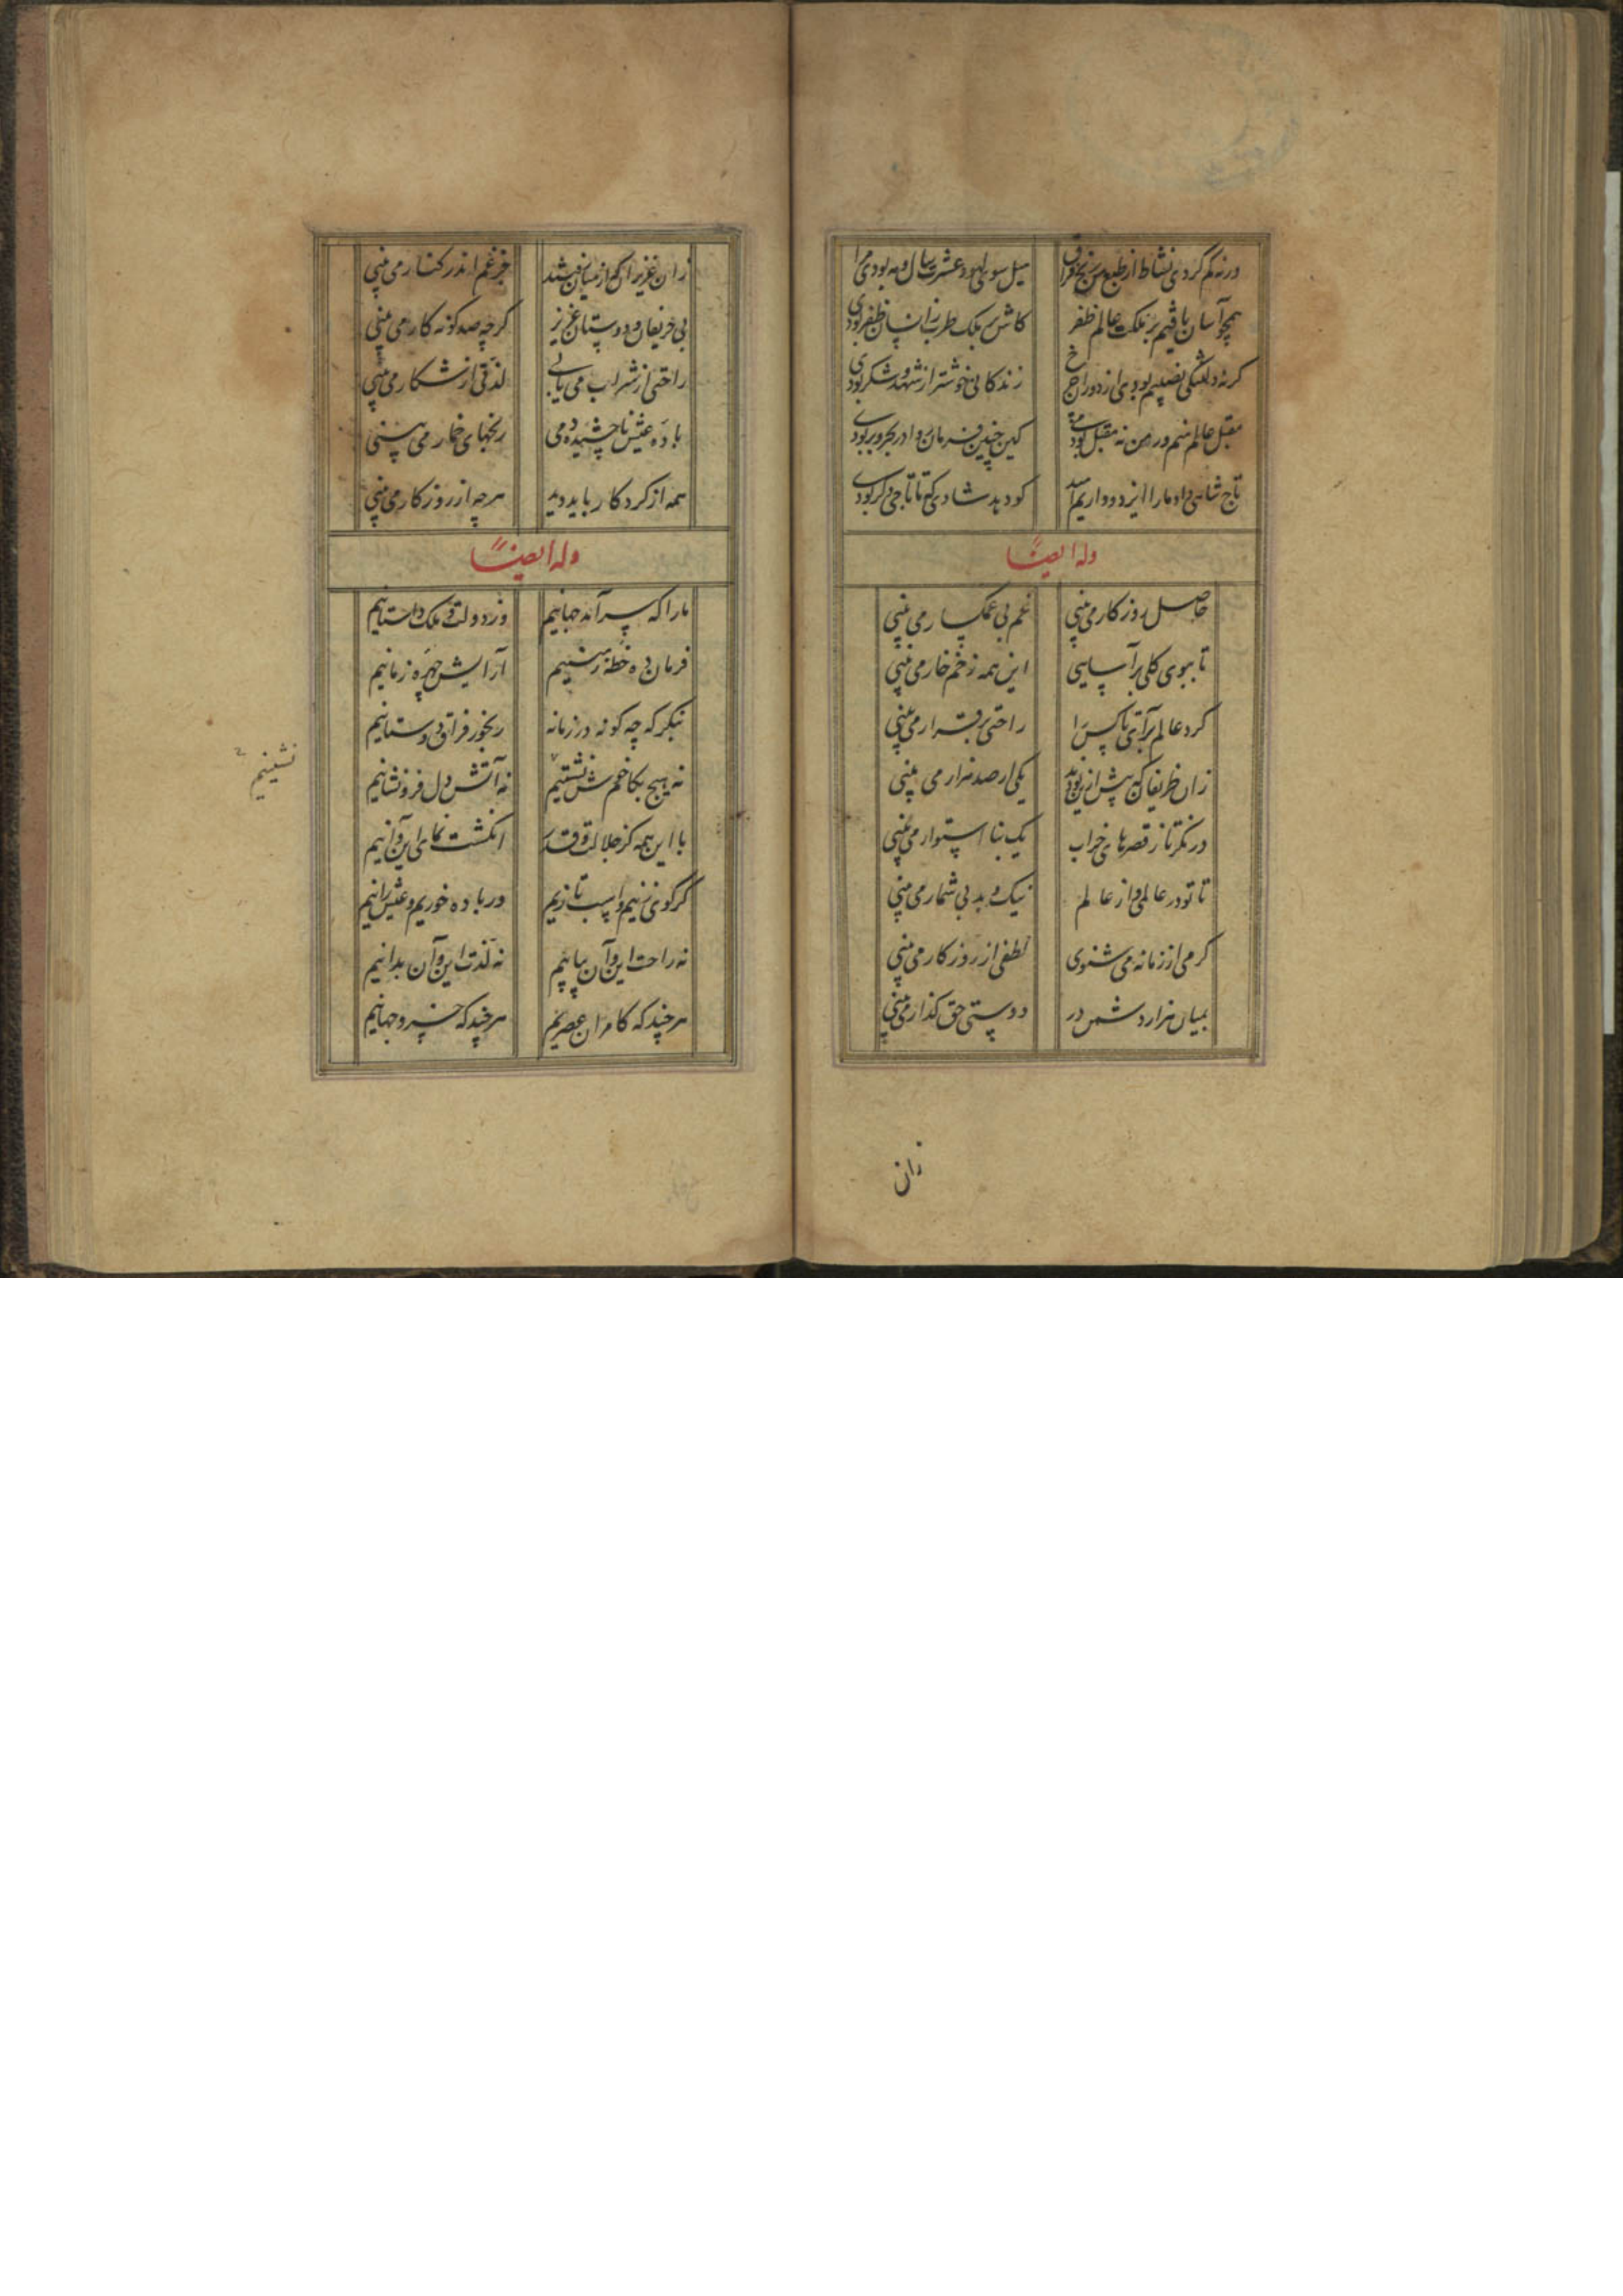 ورنه کم کردی نشاط از طبع من رنج فراق میل سوی لهو و عشرت سال و مه بودی مرا
همچو آسان یافتیم بر ملکت عالم ظفر کاش بر ملک طرب زانسان ظفر بودی
گرنه دلتنگی نصیبم بودی از دور زندگانی خوشتر از شهد و شکر بودی
مقبل عالم منم ور من نه مقبل بودمی کین چنین فرمان روا در بحر و بر بودی
تاج شاهی داد ما را ایزد و داریم امید کو دهد شادی که تا تاجی دگر بودی
وله ایضاً
حاصل روزکار می بینی غم بی غمگسار می بینی
تا ببوی کلی برآسایی این همه زخم خار می بینی
کرد عالم برآی تا کس را راحتی برقرار می بینی
زان ظریفان که پیش ازین بودند یکی از صد هزار می بینی
درنکر تا ز قصرهای خراب یک بنا استوار می بینی
تا تو در عالمی و از عالم نیک و بد بی شمار می بینی
کرمی از زمانه می شنوی لطفی از روزکار می بینی
بمیان هزار دشمن در دوستی حق کذار می بینی
زان
زان عزیزان که از میان رفتند جز غم اندر کنار می بینی
بی حریفان و دوستان عزیز کرچه صد کونه کار می بینی
راحتی از شراب می یابی لذتی از شکار می بینی
باده عیش ناچشیده دمی رنجهای خمار می بینی
همه از کردکار باید دید هرچه از روزکار می بینی
وله ایضاً
ما را که سرآمد جهانیم وز دولت و ملک داستانیم
فرمان ده خطه زمینیم آرایش چهره زمانیم
بنکر که چه کونه در زمانه رنجور فراق دوستانیم
نه هیچ بکام خوش نشستیم نه آتش دل فرو نشانیم
نشینیم
با این همه کز جلالت و قدر انکشت نمای این و آنیم
کر کوی زنیم و اسب تازیم ور باده خوریم و عیش رانیم
نه راحت این و آن بیابیم نه لذت این و آن بدانیم
هرچند که کامران عصریم هرچند که خسرو جهانیم